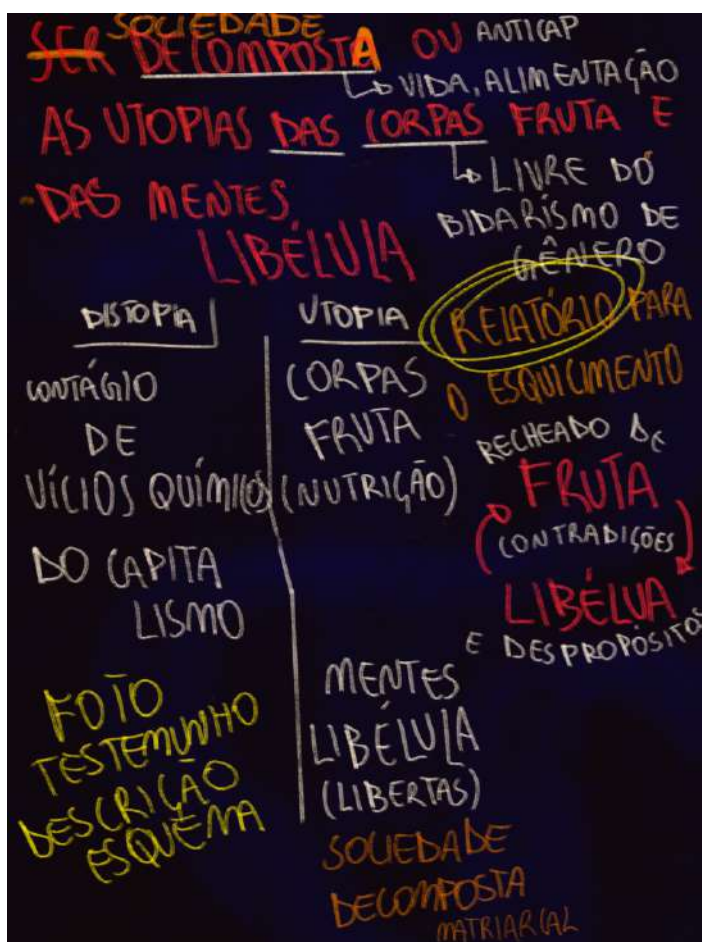 SOCIEDADE
SER DECOMPOSTA OU ANTICAP
VIDA, ALIMENTAÇÃO
AS UTOPIAS DAS CORPAS FRUTA E
LIVRE DO
BIDARISMO DE
GÊNERO
DAS MENTES
LIBÉLULA
DISTOPIA
CONTÁGIO
DE
VÍCIOS QUÍMICOS
DO CAPITA
LISMO
UTOPIA
CORPAS
FRUTA
(NUTRIÇÃO)
MENTES
LIBÉLULA
(LIBERTAS)
SOCIEDADE
DECOMPOSTA
MATRIARCAL
RELATÓRIO PARA
O ESQUICIMENTO
RECHEADO DE
FRUTA
(CONTRADIÇÕES)
LIBÉLUA
E DESPROPÓSITOS
FOTO
TESTEMUNHO
DESCRIÇÃO
ESQUEMA